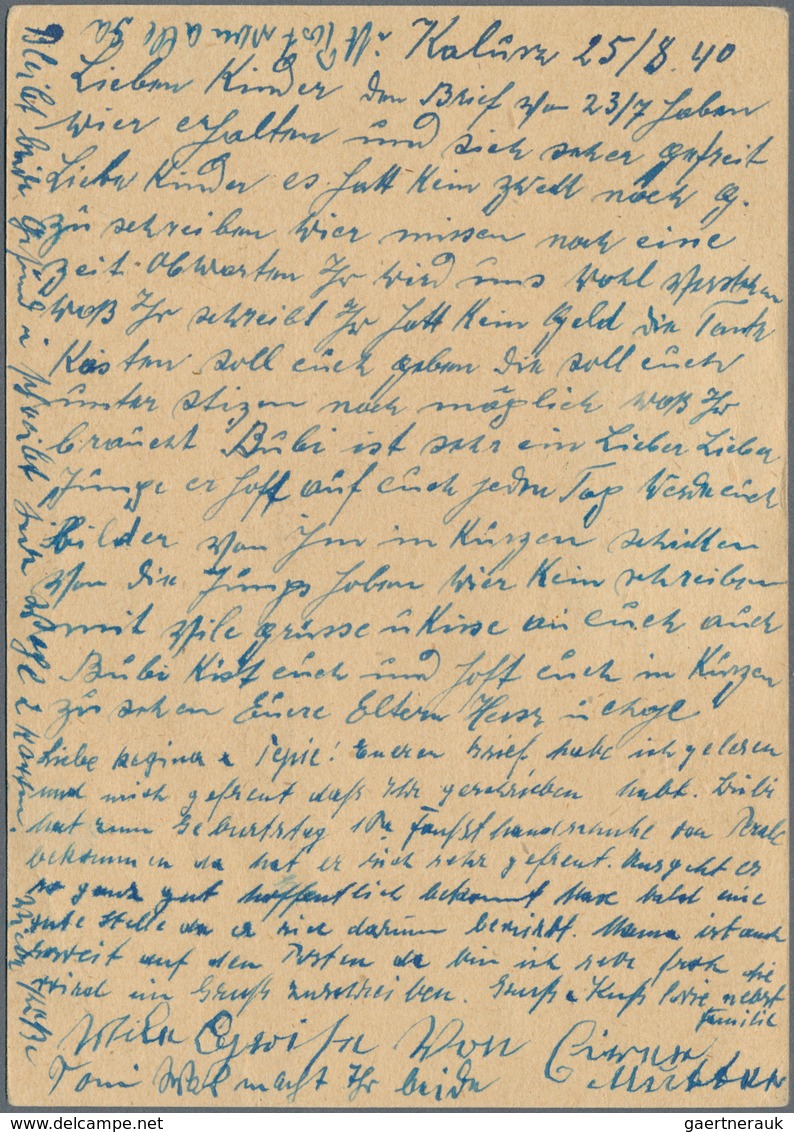 Kalusz 25/8.40
Lieben Kinder den Brief von 23/7 haben
wier erhalten und sich seher gefreit
Liebe Kinder es hatt kein zweck noch G.
zu schreiben wier missen noch eine
zeit obwarten Ihr wird uns wohl verstehen
waß Ihr schreibt Ihr hatt kein Geld die Tante
soll euch geben die soll euch
unter stizen noch möglich waß Ihr
braucht Bubi ist sehr ein Lieber Lieber
Junge er hoft auf euch jeden Tag werde euch
bilder von Im in Kurzen schicken
von die Jungs haben wier kein schreiben
mit vile grüsse u Kisse an euch auch
Bubi Kist euch und hoft euch in Kurzen
zu sehen Euere Eltern Hersz u Chaje
Liebe Regina u Pepie! Eueren Brief habe ich gelesen
und mich gefreut daß Ihr geschrieben habt. Bubi
hat zum Geburtstag Fausthandschuhe von
bekommen da hat er sich sehr gefreut. Ausgeht er
so ganz gut hoffentlich bekommt Max bald eine
gute Stelle da er sich darum bewirbt. Mama ist auch
soweit auf den Posten da bin ich sehr froh die
wird ein Gruß zuschreiben. Gruß u Kuß nebst
Familie
Von Mutter
Toni Was macht Ihr beide
Bleibt beide Gesund u schreibt
gaertnerauk